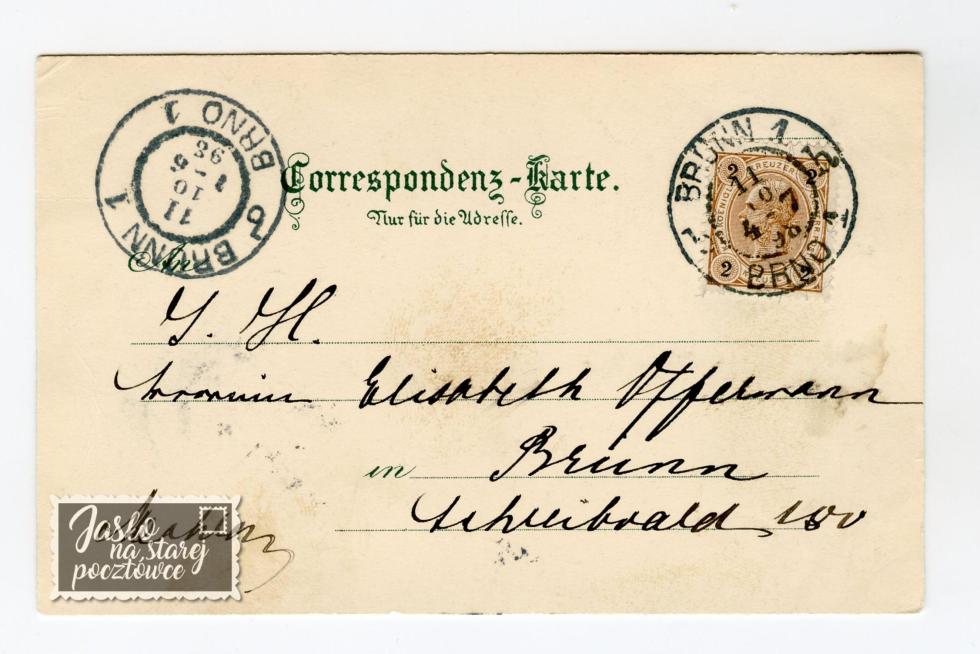 BRÜNN 1 BRNO 1
11
10
1 - 5
98
2
Correspondenz-Karte.
Nur für die Adresse.
BRÜNN 1
11
10
4
98
BRNO 1
KREUZER
2 2
2 2
An
Elisabeth Offermann
in Brünn
Schreibwald 100
Jasło
na starej
pocztówce